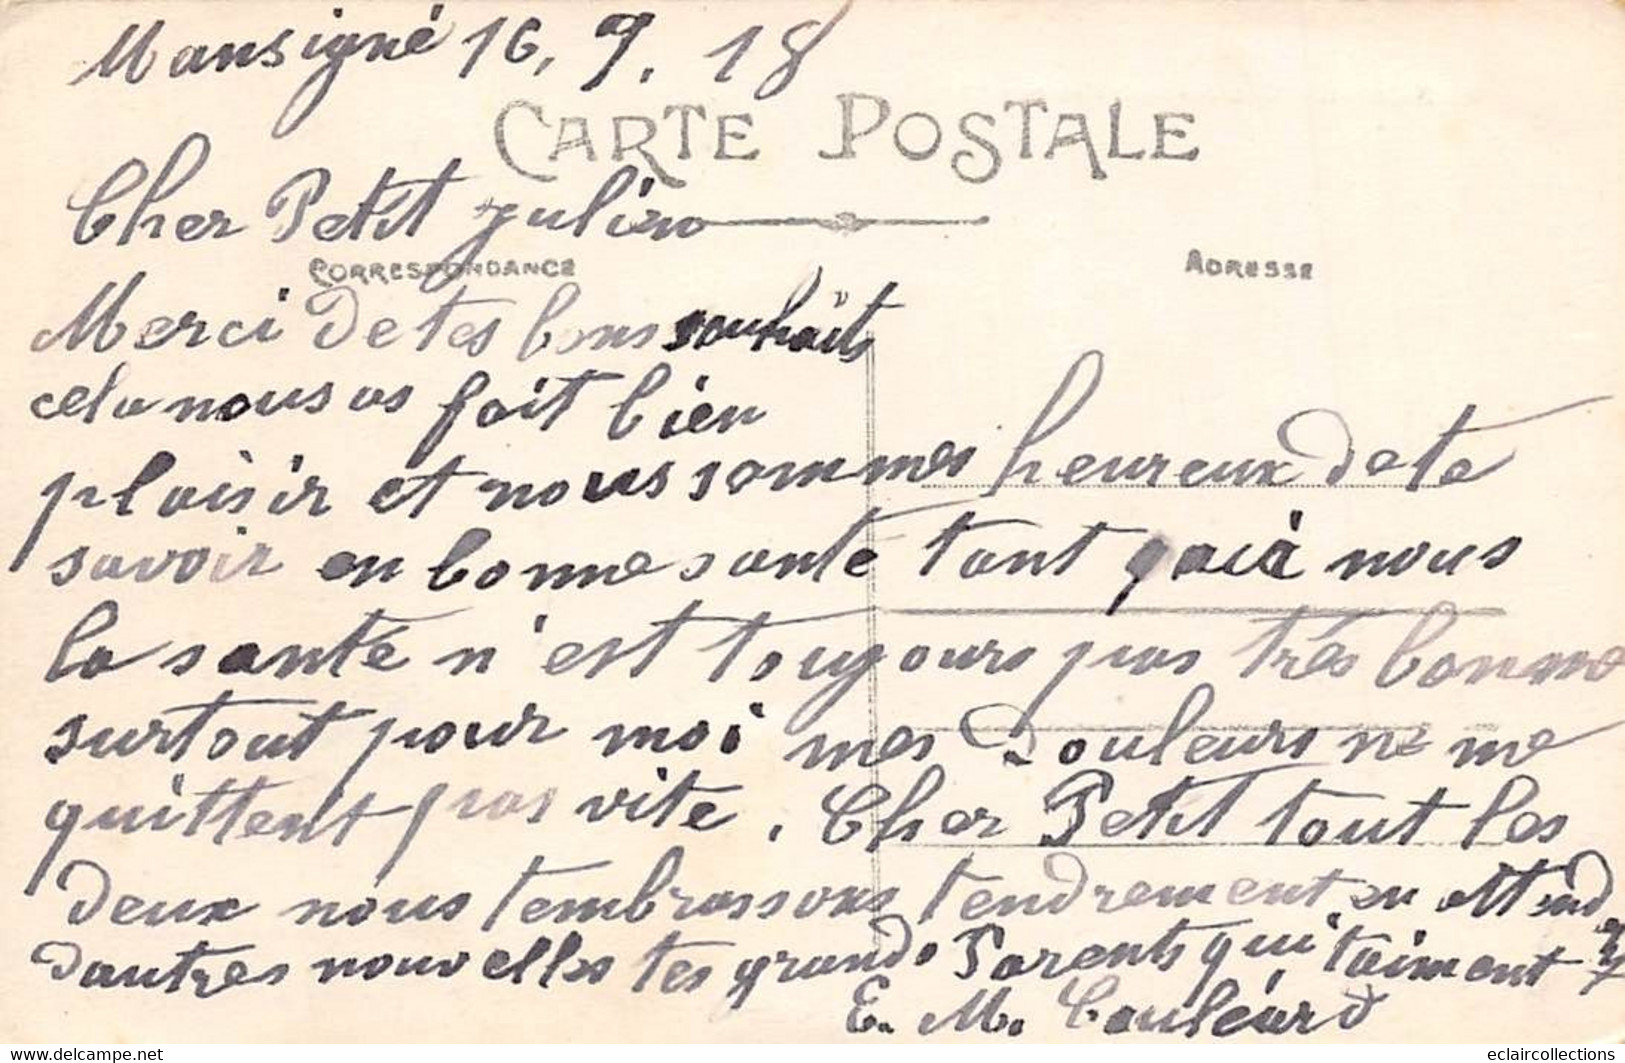 Mansigné 16.9.18
CARTE POSTALE
Cher Petit julien
CORRESPONDANCE
ADRESSE
Merci de tes bons souhaits
cela nous as fait bien
plaisir et nous sommes heureux de te
savoir en bonne santé tant qaià nous
la santé n'est toujours pas très bonne
surtout pour moi mes douleurs ne me
quittent pas vite. Cher Petit tout les
deux nous tembrassons tendrement en attend
dautres nouvelles tes grands Parents qui taiment
E. M. Couléard
eclaircollections
www.delcampe.net